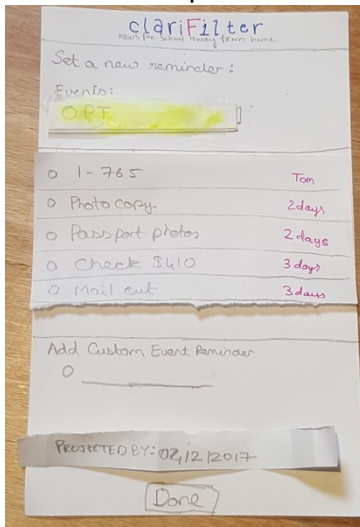 clariFilter
news for school away from home
Set a new reminder:
Events:
OPT
O I-765 Tom
O Photo copy. 2 days
O Passport photos 2 days
O Check $410 3 days
O Mail out 3 days
Add Custom Event Reminder
O
PROJECTED BY: 02/2/2017
Done